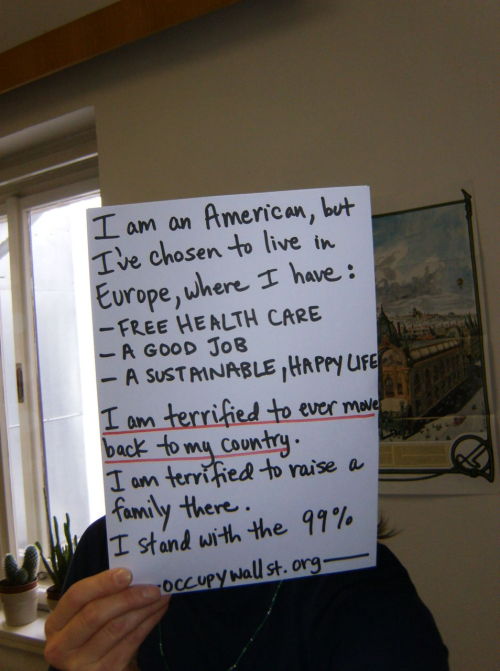 I am an American, but
I've chosen to live in
Europe, where I have:
- FREE HEALTH CARE
- A GOOD JOB
- A SUSTAINABLE, HAPPY LIFE
I am terrified to ever move
back to my country.
I am terrified to raise a
family there.
I stand with the 99%
-occupywallst.org-